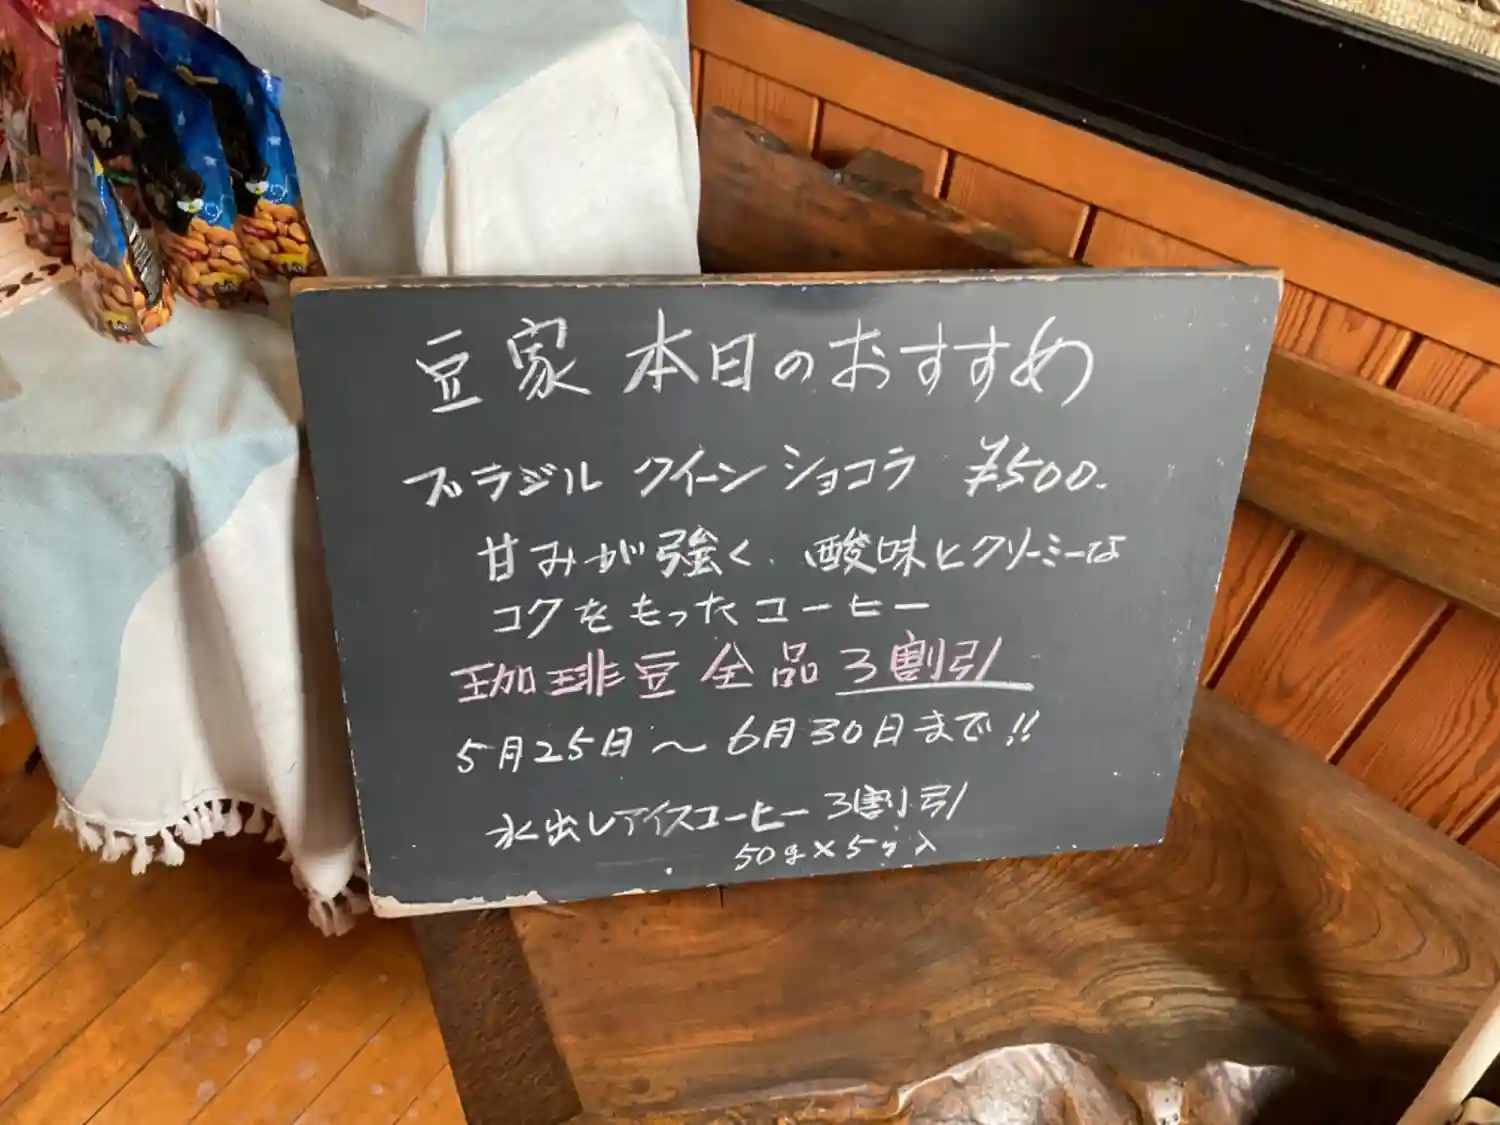 豆家 本日のおすすめ
ブラジル クイーン ショコラ ¥500.
甘みが強く、酸味とクリーミーな
コクをもったコーヒー
珈琲豆 全品 3割引
5月25日〜6月30日まで!!
水出しアイスコーヒー 3割引
50g×5ヶ入